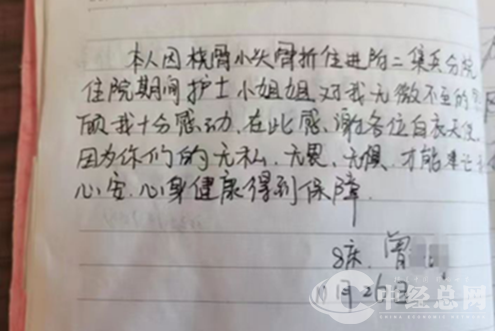 本人因桡骨小头骨折住进附二集美分院
住院期间护士小姐姐对我无微不至的
顾我十分感动、在此感谢各位白衣天使
因为你们的无私、无畏、无惧、才能
心安、心身健康得到保障.
8床、曾
1月26日
中经总网